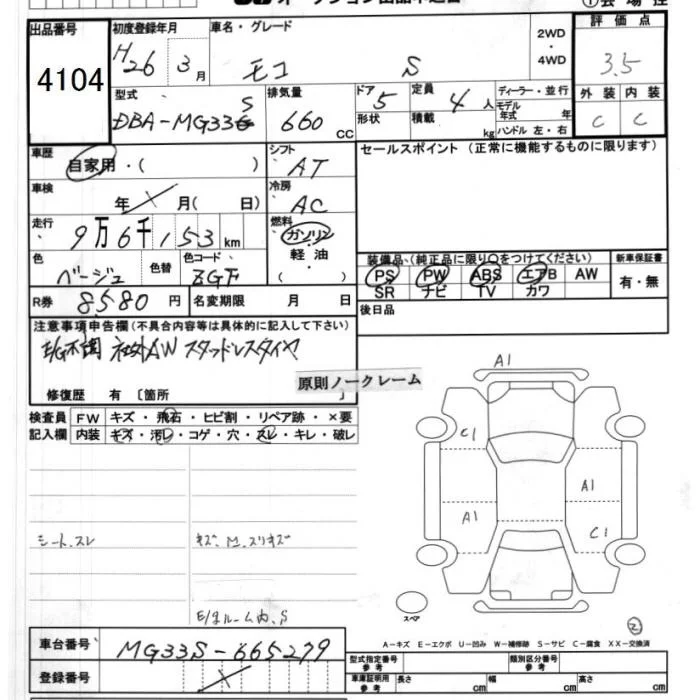 出品番号
4104
初度登録年月
H26 3月
車名・グレード
モコ S
2WD
・
4WD
評価点
3.5
外装 内装
C C
型式
DBA-MG33S
排気量
660 CC
ドア 5
形状
定員 4 人
積載 kg
ディーラー・並行
モデル年式 年
ハンドル 左・右
車歴
自家用・( )
シフト
AT
セールスポイント (正常に機能するものに限ります)
車検
年 月( 日)
冷房
AC
走行
9万6千153km
燃料
ガソリン
軽油
・( )
色
ベージュ
色替
色コード
ZGF
装備品(純正品に限り○をつけてください)
新車保証書
PS PW ABS エアB AW
SR ナビ TV カワ
有・無
R券 8,580円
名変期限 月 日
後日品
注意事項申告欄(不具合内容等は具体的に記入して下さい)
E/G不調 社外AW スタッドレスタイヤ
原則ノークレーム
修復歴 有〔箇所 〕
検査員
記入欄
FW キズ・飛石・ヒビ割・リペア跡・×要
内装 キズ・汚レ・コゲ・穴・スレ・キレ・破レ
シート、スレ
キズ、M、スリキズ
E/gルーム内、S
A1
C1
A1
A1
C1
スペア
②
A-キズ E-エクボ U-凹み W-補修跡 S-サビ C-腐食 XX-交換済
車台番号
MG33S-665279
登録番号
型式指定番号
参考
類別区分番号
参考
車庫証明用
参考
長さ cm
幅 cm
高さ cm